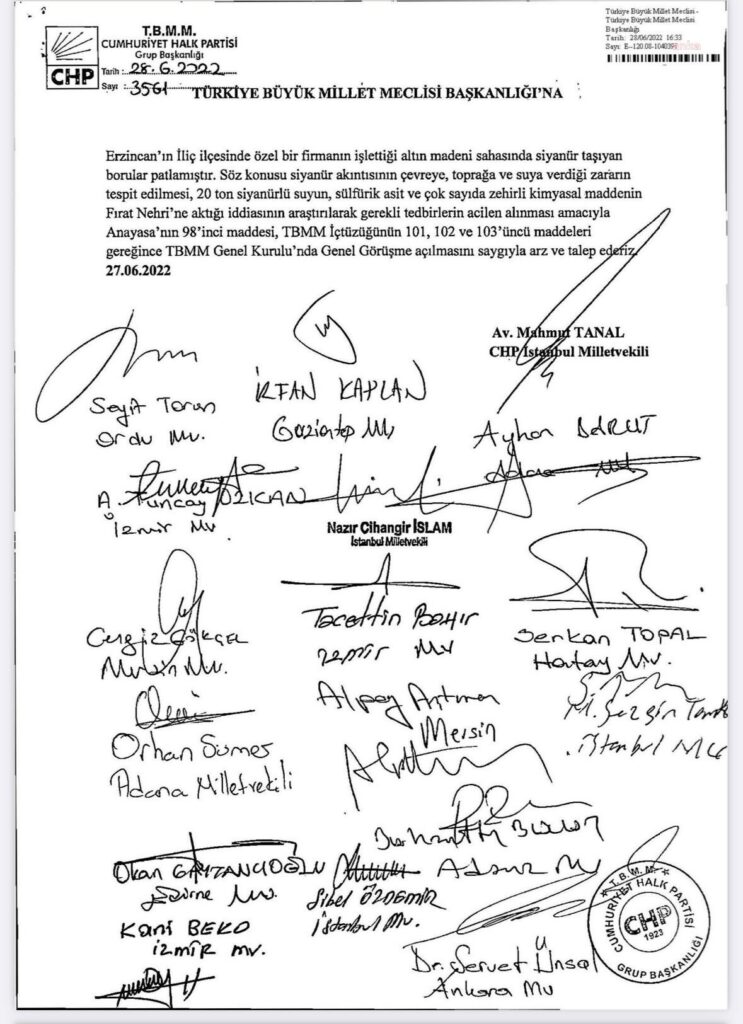 Türkiye Büyük Millet Meclisi -
Türkiye Büyük Millet Meclisi
Başkanlığı
Tarih: 28/06/2022 16:33
Sayı: E-120.08-1040391
T.B.M.M.
CUMHURİYET HALK PARTİSİ
Grup Başkanlığı
CHP
Tarih : 28.6.2022
Sayı : 3561
TÜRKİYE BÜYÜK MİLLET MECLİSİ BAŞKANLIĞI'NA
Erzincan'ın İliç ilçesinde özel bir firmanın işlettiği altın madeni sahasında siyanür taşıyan
borular patlamıştır. Söz konusu siyanür akıntısının çevreye, toprağa ve suya verdiği zararın
tespit edilmesi, 20 ton siyanürlü suyun, sülfürik asit ve çok sayıda zehirli kimyasal maddenin
Fırat Nehri'ne aktığı iddiasının araştırılarak gerekli tedbirlerin acilen alınması amacıyla
Anayasa'nın 98'inci maddesi, TBMM İçtüzüğünün 101, 102 ve 103'üncü maddeleri
gereğince TBMM Genel Kurulu'nda Genel Görüşme açılmasını saygıyla arz ve talep ederiz.
27.06.2022
Av. Mahmut TANAL
CHP İstanbul Milletvekili
Seyit Torun
Ordu Mv.
İRFAN KAPLAN
Gaziantep Mv
Ayhan BARUT
Adana Mv
A. Tuncay ÖZKAN
İzmir Mv
Nazır Cihangir İSLAM
İstanbul Milletvekili
Cengiz Gökçel
Mersin Mv.
Tacettin Bayır
izmir Mv
Serkan TOPAL
Hatay Mv.
Orhan Sümer
Adana Milletvekili
Alpay Antmen
Mersin
M. Sezgin
İstanbul Mv
Adana Mv
Okan GAYTANCIOĞLU
Edirne Mv.
Sibel ÖZDEMİR
İstanbul Mv.
Kani BEKO
İZMİR mv.
Dr. Servet Ünsal
Ankara Mv
T.B.M.M.
CUMHURİYET HALK PARTİSİ
CHP
1923
GRUP BAŞKANLIĞI